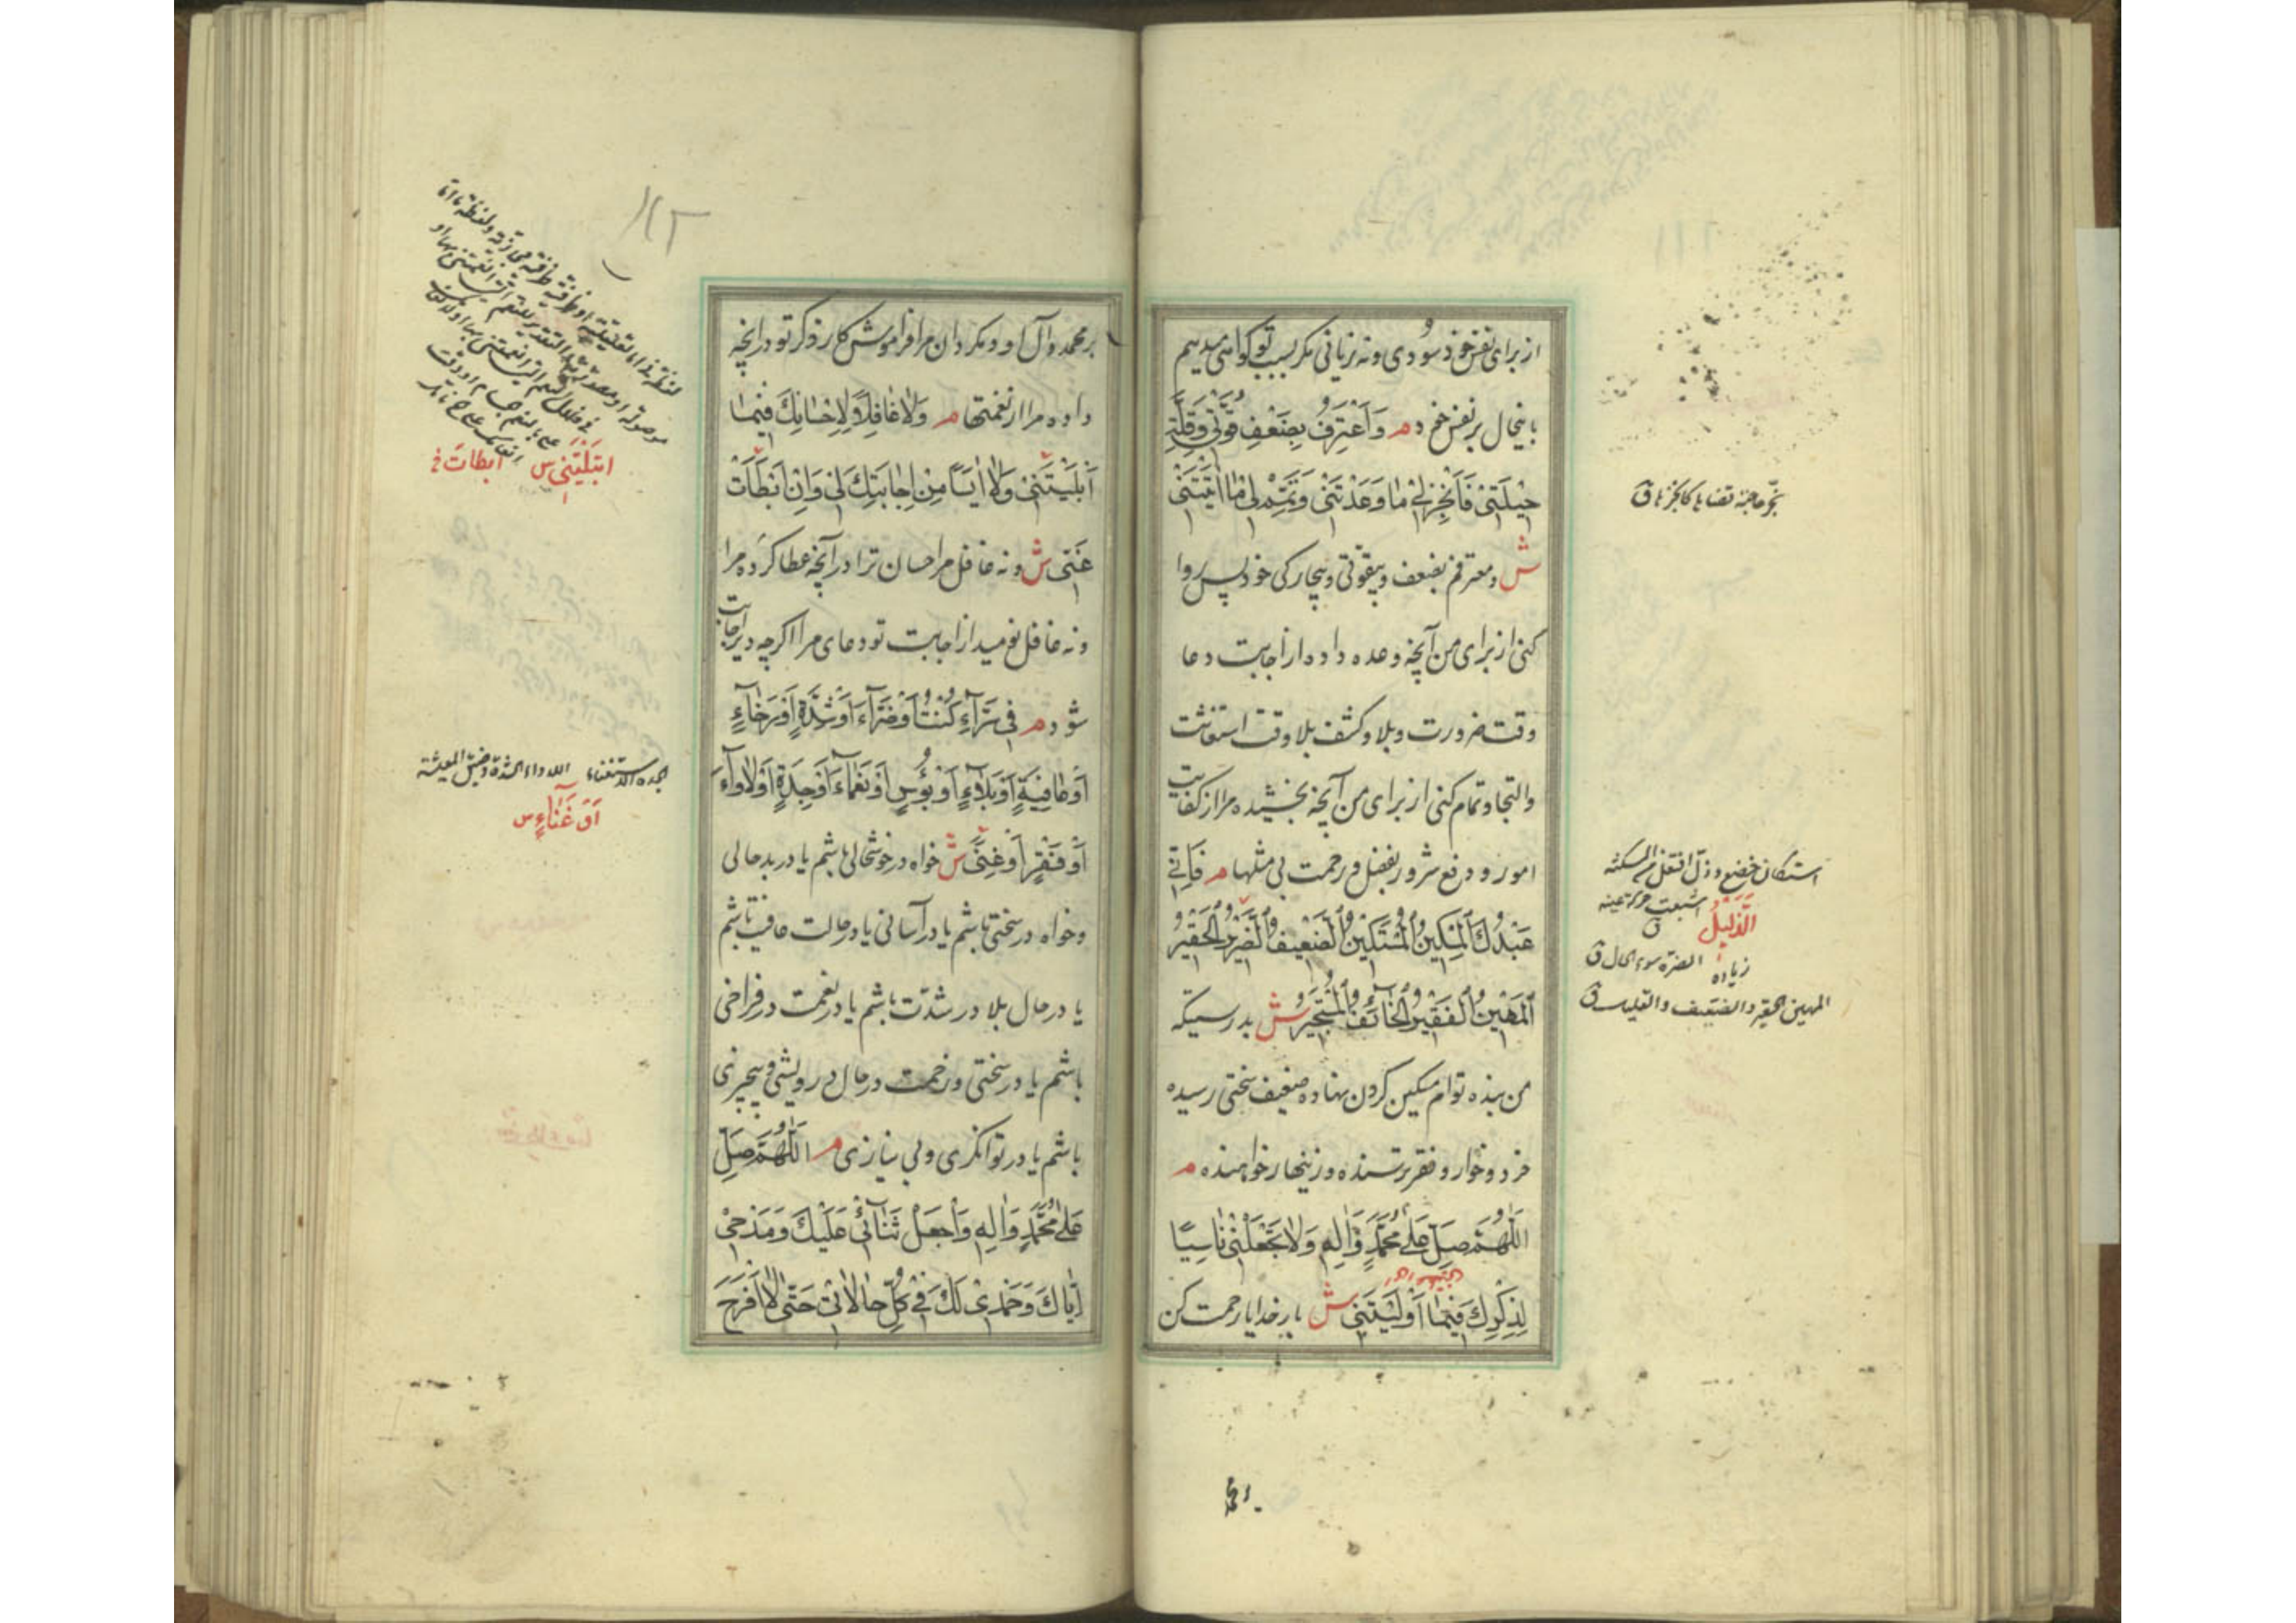 از برای نفس خود سودی و نه زیانی مگر بسبب تو گواهی میدهم
باینحال بر نفس خود م وَاَعْتَرِفُ بِضَعْفِ قُوَّتى وَقِلَّةِ
حيْلَتى فَاَنْجِزْ لى مٰا وَعَدْتَنى وَتَمِّمْ لى مٰا اٰتَيْتَنى
ش و معترفم بضعف و بیقوتی و بیچارگی خود پس روا
کنی از برای من آنچه وعده داده از اجابت دعا
وقت ضرورت و بلا و کشف بلا وقت استغاثت
والتجا و تمام کنی از برای من آنچه بخشیده مرا از کفایت
امور و دفع شرور بفضل و رحمت بی مثلها م فَاِنّى
عَبْدُكَ الْمِسْكينُ الْمُسْتَكينُ الضَّعيفُ الضَّريرُ الْحَقيرُ
الْمَهينُ الْفَقيرُ الْخٰآئِفُ الْمُسْتَجيرُ ش بدرستیکه
من بنده توام مسکین گردن نهاده ضعیف سختی رسیده
خرد و خوار و فقیر ترسنده و زینهار خواهنده م
اَللّٰهُمَّ صَلِّ عَلىٰ مُحَمَّدٍ وَاٰلِهِ وَلاٰ تَجْعَلْنى نٰاسِيًا
لِذِكْرِكَ فيمٰا اَوْلَيْتَنى ش بار خدایا رحمت کن
استکان خضع و ذل افتعل من المسکنة
اشبعت حرکة عینه ق
الذَّليلُ
زیاده
الضرة سوء الحال ق
المهین الحقیر والضعیف والقلیل ق
بر محمد
بر محمد و آل او و مگردان مرا فراموش کار ذکر تو در آنچه
داده مرا از نعمتها م وَلاٰ غٰافِلًا لِاِحْسٰانِكَ فيمٰا
اَبْلَيْتَنى وَلاٰ اٰيِسًا مِنْ اِجٰابَتِكَ لى وَاِنْ اَبْطَاَتْ
عَنّى ش و نه غافل مر احسان ترا در آنچه عطا کرده مرا
و نه غافل نومید از اجابت تو دعای مرا اگر چه دیر اجابت
شود م فى سَرّٰآءَ كُنْتُ اَوْ ضَرّٰآءَ اَوْ شِدَّةٍ اَوْ رَخٰآءٍ
اَوْ عٰافِيَةٍ اَوْ بَلاٰءٍ اَوْ بُؤْسٍ اَوْ نَعْمٰآءَ اَوْ جِدَةٍ اَوْ لَاْوٰآءَ
اَوْ فَقْرٍ اَوْ غِنًى ش خواه در خوشحالی باشم یا در بدحالی
و خواه در سختی باشم یا در آسانی یا در حالت عافیت باشم
یا در حال بلا در شدّت باشم یا در نعمت در فراخی
باشم یا در سختی و زحمت در حال درویشی و بیچیزی
باشم یا در توانگری و بی نیازی م اَللّٰهُمَّ صَلِّ
عَلىٰ مُحَمَّدٍ وَاٰلِهِ وَاجْعَلْ ثَنٰآئى عَلَيْكَ وَمَدْحى
اِيّٰاكَ وَحَمْدى لَكَ فى كُلِّ حٰالاٰتى حَتّٰى لاٰ اَفْرَحَ
ابْتَلَيْتَنى س
اَبْطَاَتْ خ
الجدة الاستغناء
اللاواء الشدة وضیق المعیشة
اَوْ غَنٰآءٍ س